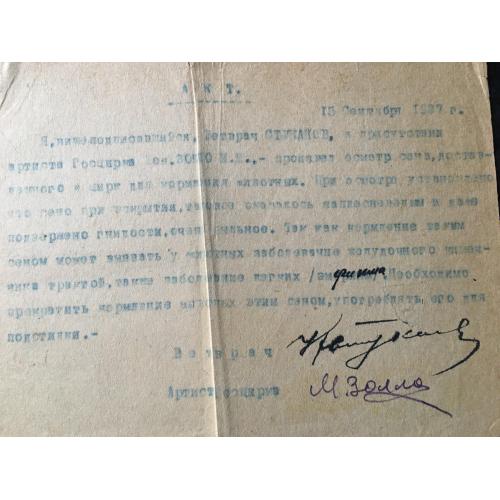 А К Т.
15 Сентября 1937 г.
Я, нижеподписавшийся, Ветврач в присутствии
артиста Госцирка тов. М.И.,- произвел осмотр сена, достав-
ленного в цирк для кормления животных. При осмотре установлено
что сено при вскрытии, таковое оказалось заплесневшим и даже
подвержено гнилости, очень пыльное. Так как кормление таким
сеном может вызвать у животных заболевание желудочного кишеч-
ника трактой, также заболевание легких /эмфизема Необходимо
прекратить кормление животных этим сеном, употреблять его для
подстилки.-
В е т в р а ч
Артист Госцирка
М. Золло